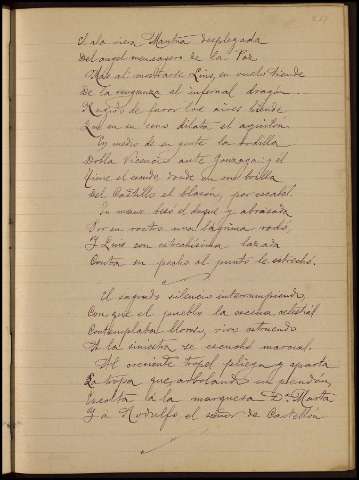 El ala viera Mantua desplegada
Del angel mensagero de la Paz
Mas al mostrarse Luis, en vuelo tiende
De la venganza el infernal dragón
Rugidos de furor los aires hiende
Que en su seno dilata el aquilón
En medio de su gente la rodilla
Dobla Vicencio ante Gonzaga y él
Tiene el escudo donde en oro brilla
Del Castillo el blasón, por escabel
Su mano besó el duque y abrasada
Por su rostro una lágrima rodó,
Y Luis con estrechísima lazada
Contra su pecho al punto le estrechó.
El sagrado silencio interrumpiendo,
Con que el pueblo la escena celestial
Contemplaba lloroso, vivo estruendo
A la siniestra se escucha marcial.
Al creciente tropel pliega y aparta
La tropa que, arbolando un pendón,
Escolta á la marquesa Dª Marta
Y á Rodulfo el señor de Castellón